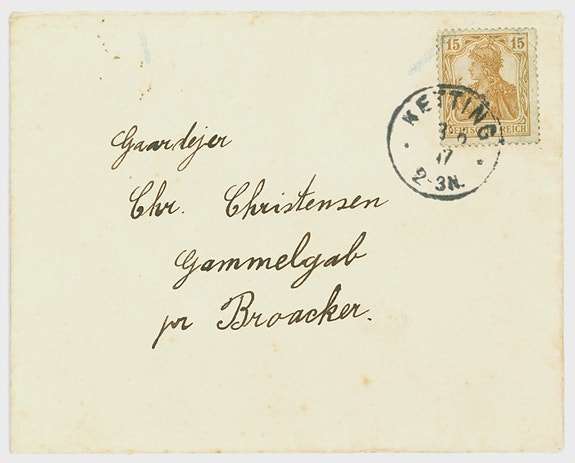 15 15
DEUTSCHES REICH
KETTING
17
2-3N.
Gaardejer
Chr. Christensen
Gammelgab
pr Broacker.